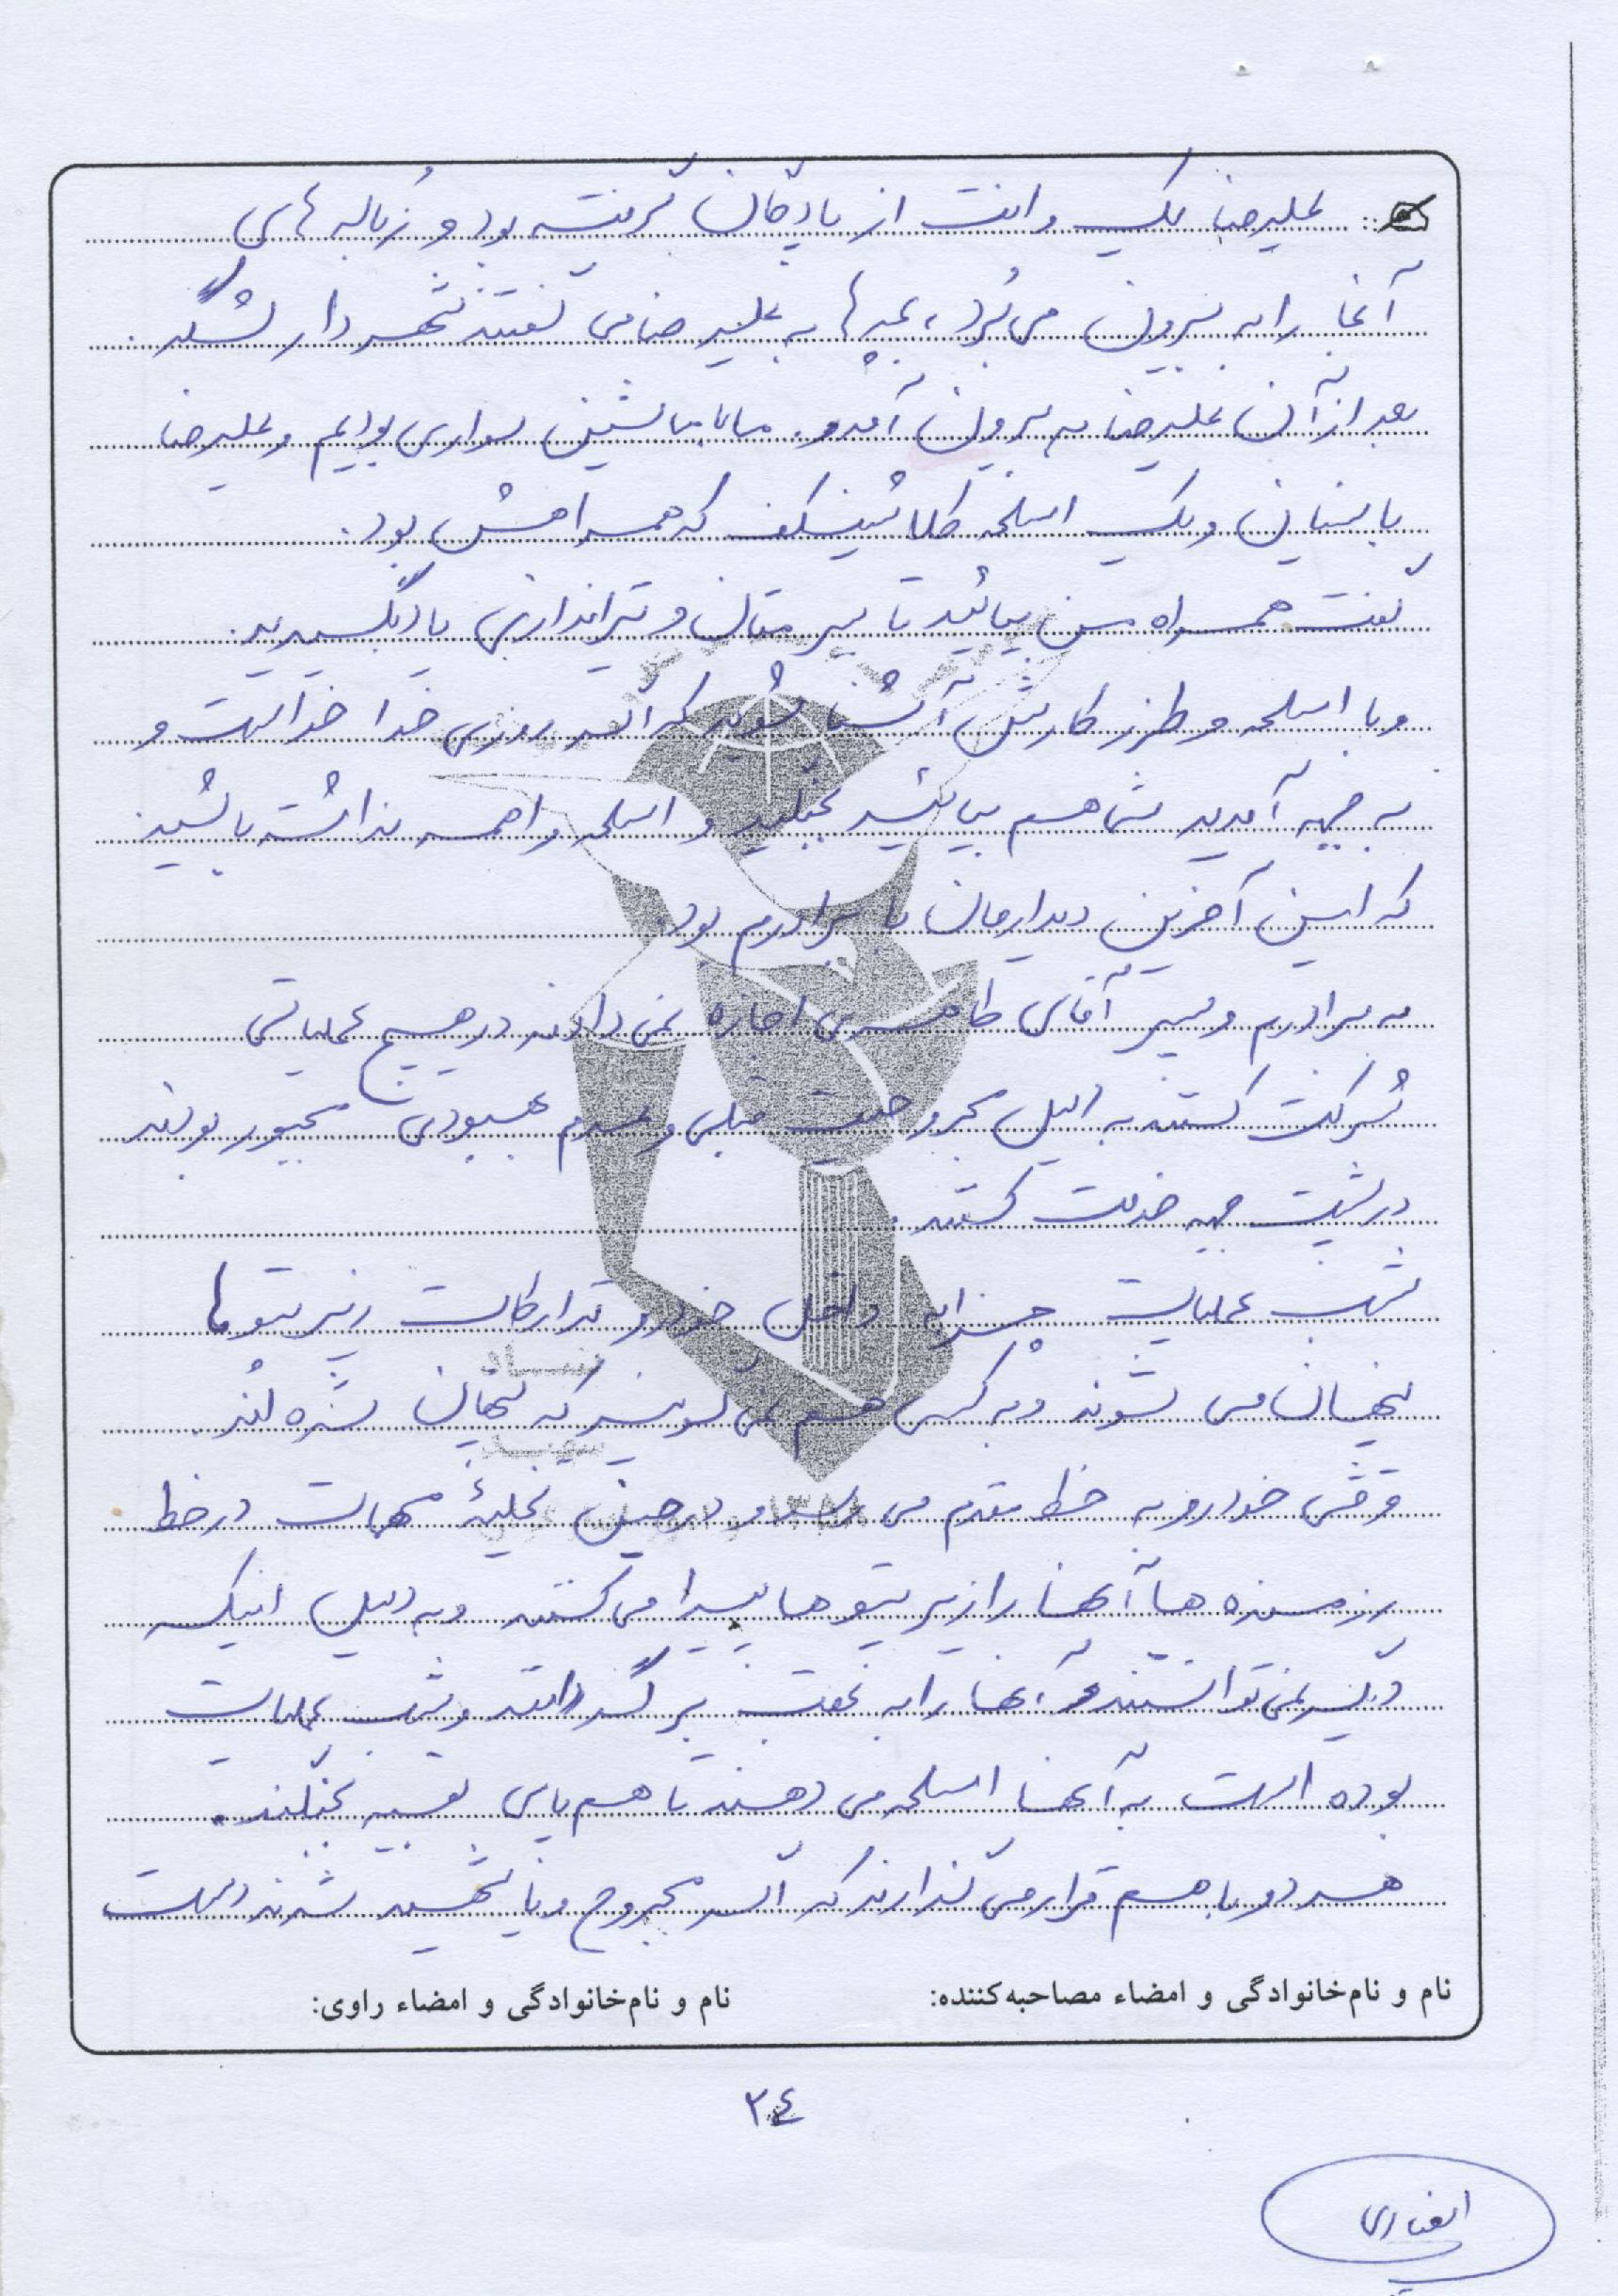 علیرضا یک وانت از پادگان گرفته بود و زباله های
آنجا را به بیرون می برد، بچه ها به علیرضا می گفتند شهردار لشگر.
بعد از آن علیرضا به بیرون آمد و ما با ماشین سواری بودیم و علیرضا
با نیسان و یک اسلحه کلاشینکف که همراهش بود.
گفت همراه من بیائید تا سر میدان و تیراندازی یاد بگیرید.
و با اسلحه و طرز کارش آشنا شوید که اگر روزی خدا خواست و
به جبهه آمدید شما هم بیائید بجنگید و اسلحه واهمه نداشته باشید
که این آخرین دیدارمان با برادرم بود.
به برادرم و پسر آقای طاهری اجازه نمی دادند در هیچ عملیاتی
شرکت کنند به دلیل مجروحیت قبلی و عدم بهبودی مجبور بودند
در پشت جبهه خدمت کنند.
شب عملیات چزابه داخل خودرو تدارکات زیر پتوها
پنهان می شوند و به کسی هم نمی گویند که پنهان شده اند.
وقتی خودرو به خط مقدم می رسد و در حین تخلیهٔ مهمات در خط
رزمنده ها آنها را زیر پتوها پیدا می کنند و به دلیل اینکه
دیگر نمی توانستند آنها را به عقب برگردانند و شب عملیات
بوده است به آنها اسلحه می دهند تا هم پای بقیه بجنگند.
هر دو با هم قرار می گذارند که اگر مجروح و یا شهید شدند دست
نام و نام‌خانوادگی و امضاء مصاحبه‌کننده:
نام و نام‌خانوادگی و امضاء راوی:
۲٤